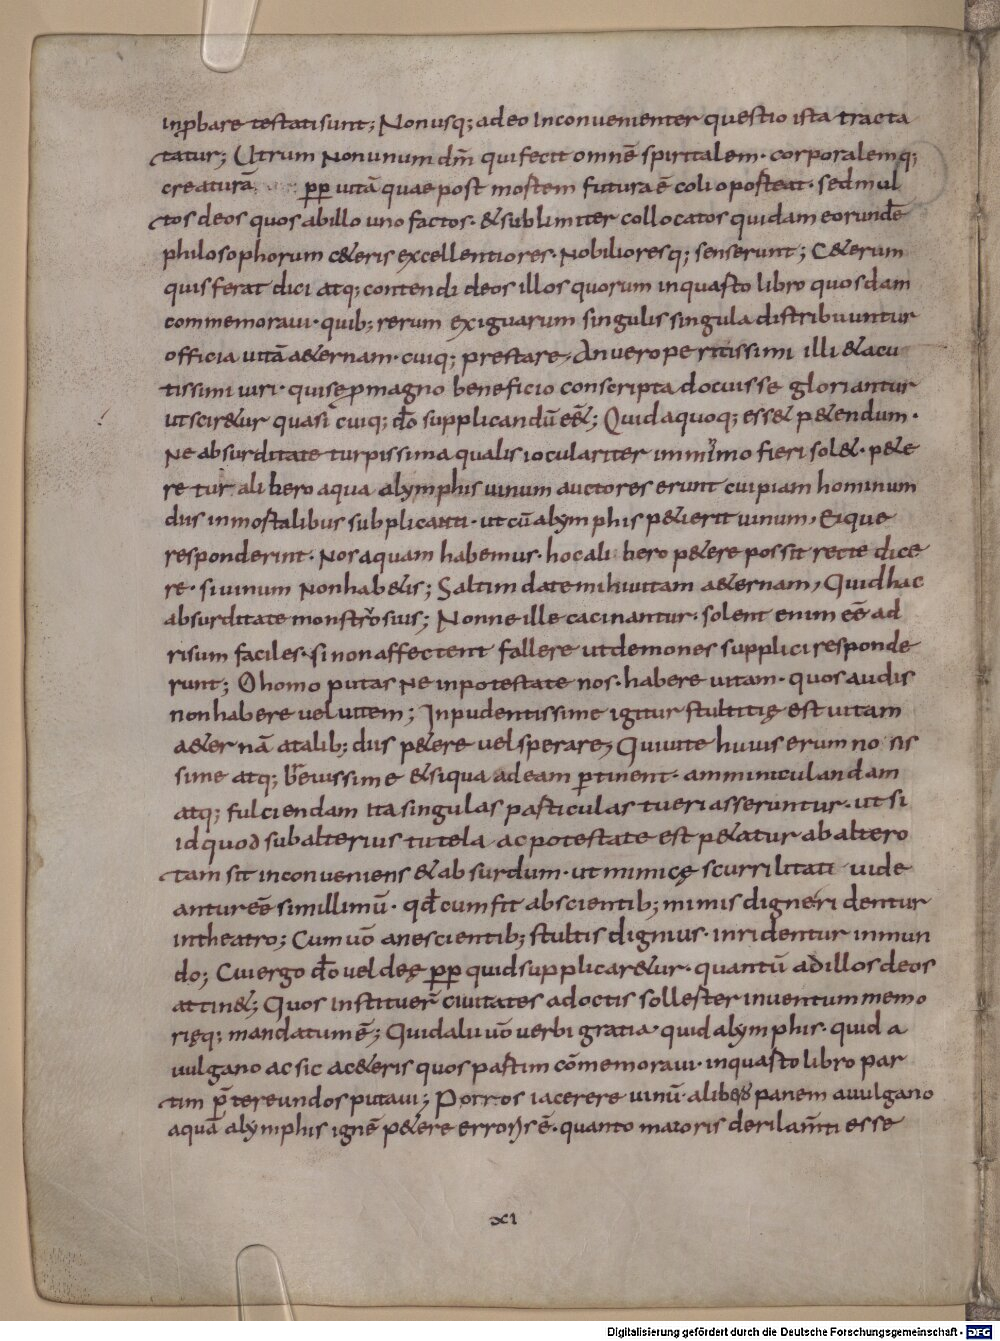 inꝓbare testati sunt; Non usq; adeo Inconuenienter questio ista tracta
tatur; Utrum Non unum dm̄ qui fecit omnē spiritalem · corporalemq;
creaturā pp uitā quae post mostem futura ē coli oposteat · sed mul
tos deos quos ab illo uno factos · & sublimiter collocatos quidam eorundē
philosophorum c&eris excellentiores · Nobilioresq; senserunt; C&erum
quis ferat dici atq; contendi deos illos quorum in quasto libro quosdam
commemoraui · quib; rerum exiguarum singulis singula distribuuntur
officia uitā a&ernam · cuiq; prestare, An uero peritissimi illi & acu
tissimi uiri · qui se ꝓ magno beneficio conscripta docuisse gloriantur
ut scir&ur quasi cuiq; dō supplicandū ee&; Quid a quoq; ess& p&endum ·
Ne absurditate turpissima qualis ioculariter in mimo fieri sol& · p&e
re tur a libero aqua a lymphis uinum auctores erunt cuipiam hominum
diis inmostalibus subplicanti · ut cū a lymphis p&ierit uinum, Eique
responderint · Nos aquam habemus · hoc a libero p&ere possit recte dice
re · si uinum Non hab&is; Saltim date mihi uitam a&ernam, Quid hac
absurditate monstrosius; Nonne ille cacinantur · solent enim eē ad
risum faciles · si non affectent fallere ut demones supplici responde
runt; O homo putas Ne in potestate nos · habere uitam · quos audis
non habere uel uitem; Inpudentissime igitur stultitię est uitam
a&ernā a talib; diis p&ere uel sperare, Qui uite huius erumnosis
sime atq; breuissime & siqua ad eam ꝑtinent · amminiculandam
atq; fulciendam Ita singulas pasticulas tueri asseruntur · ut si
id quod sub alterius tutela ac potestate est p&atur ab altero
tam sit inconueniens & absurdum · ut mimicę scurrilitati uide
antur eē simillimū · qđ cum fit ab scientib; mimis digne ridentur
in theatro; Cum uō a nescientib; stultis dignius · inridentur in mun
do; Cui ergo dō uel deę pp quid supplicar&ur · quantū ad illos deos
attin&; Quos instituer̄ ciuitates a doctis sollester inuentum memo
rięq; mandatum ē; Quid a liuō uerbi gratia · quid a lymphis · quid a
uulgano ac sic a c&eris quos pastim cōmemoraui · in quasto libro par
tim p̄tereundos putaui; Porros iacerere uinū · a libero panem a uulgano
aquā a lymphis ignē p&ere erroris ē · quanto maioris derilam̄ti esse
xi
Digitalisierung gefördert durch die Deutsche Forschungsgemeinschaft - DFG